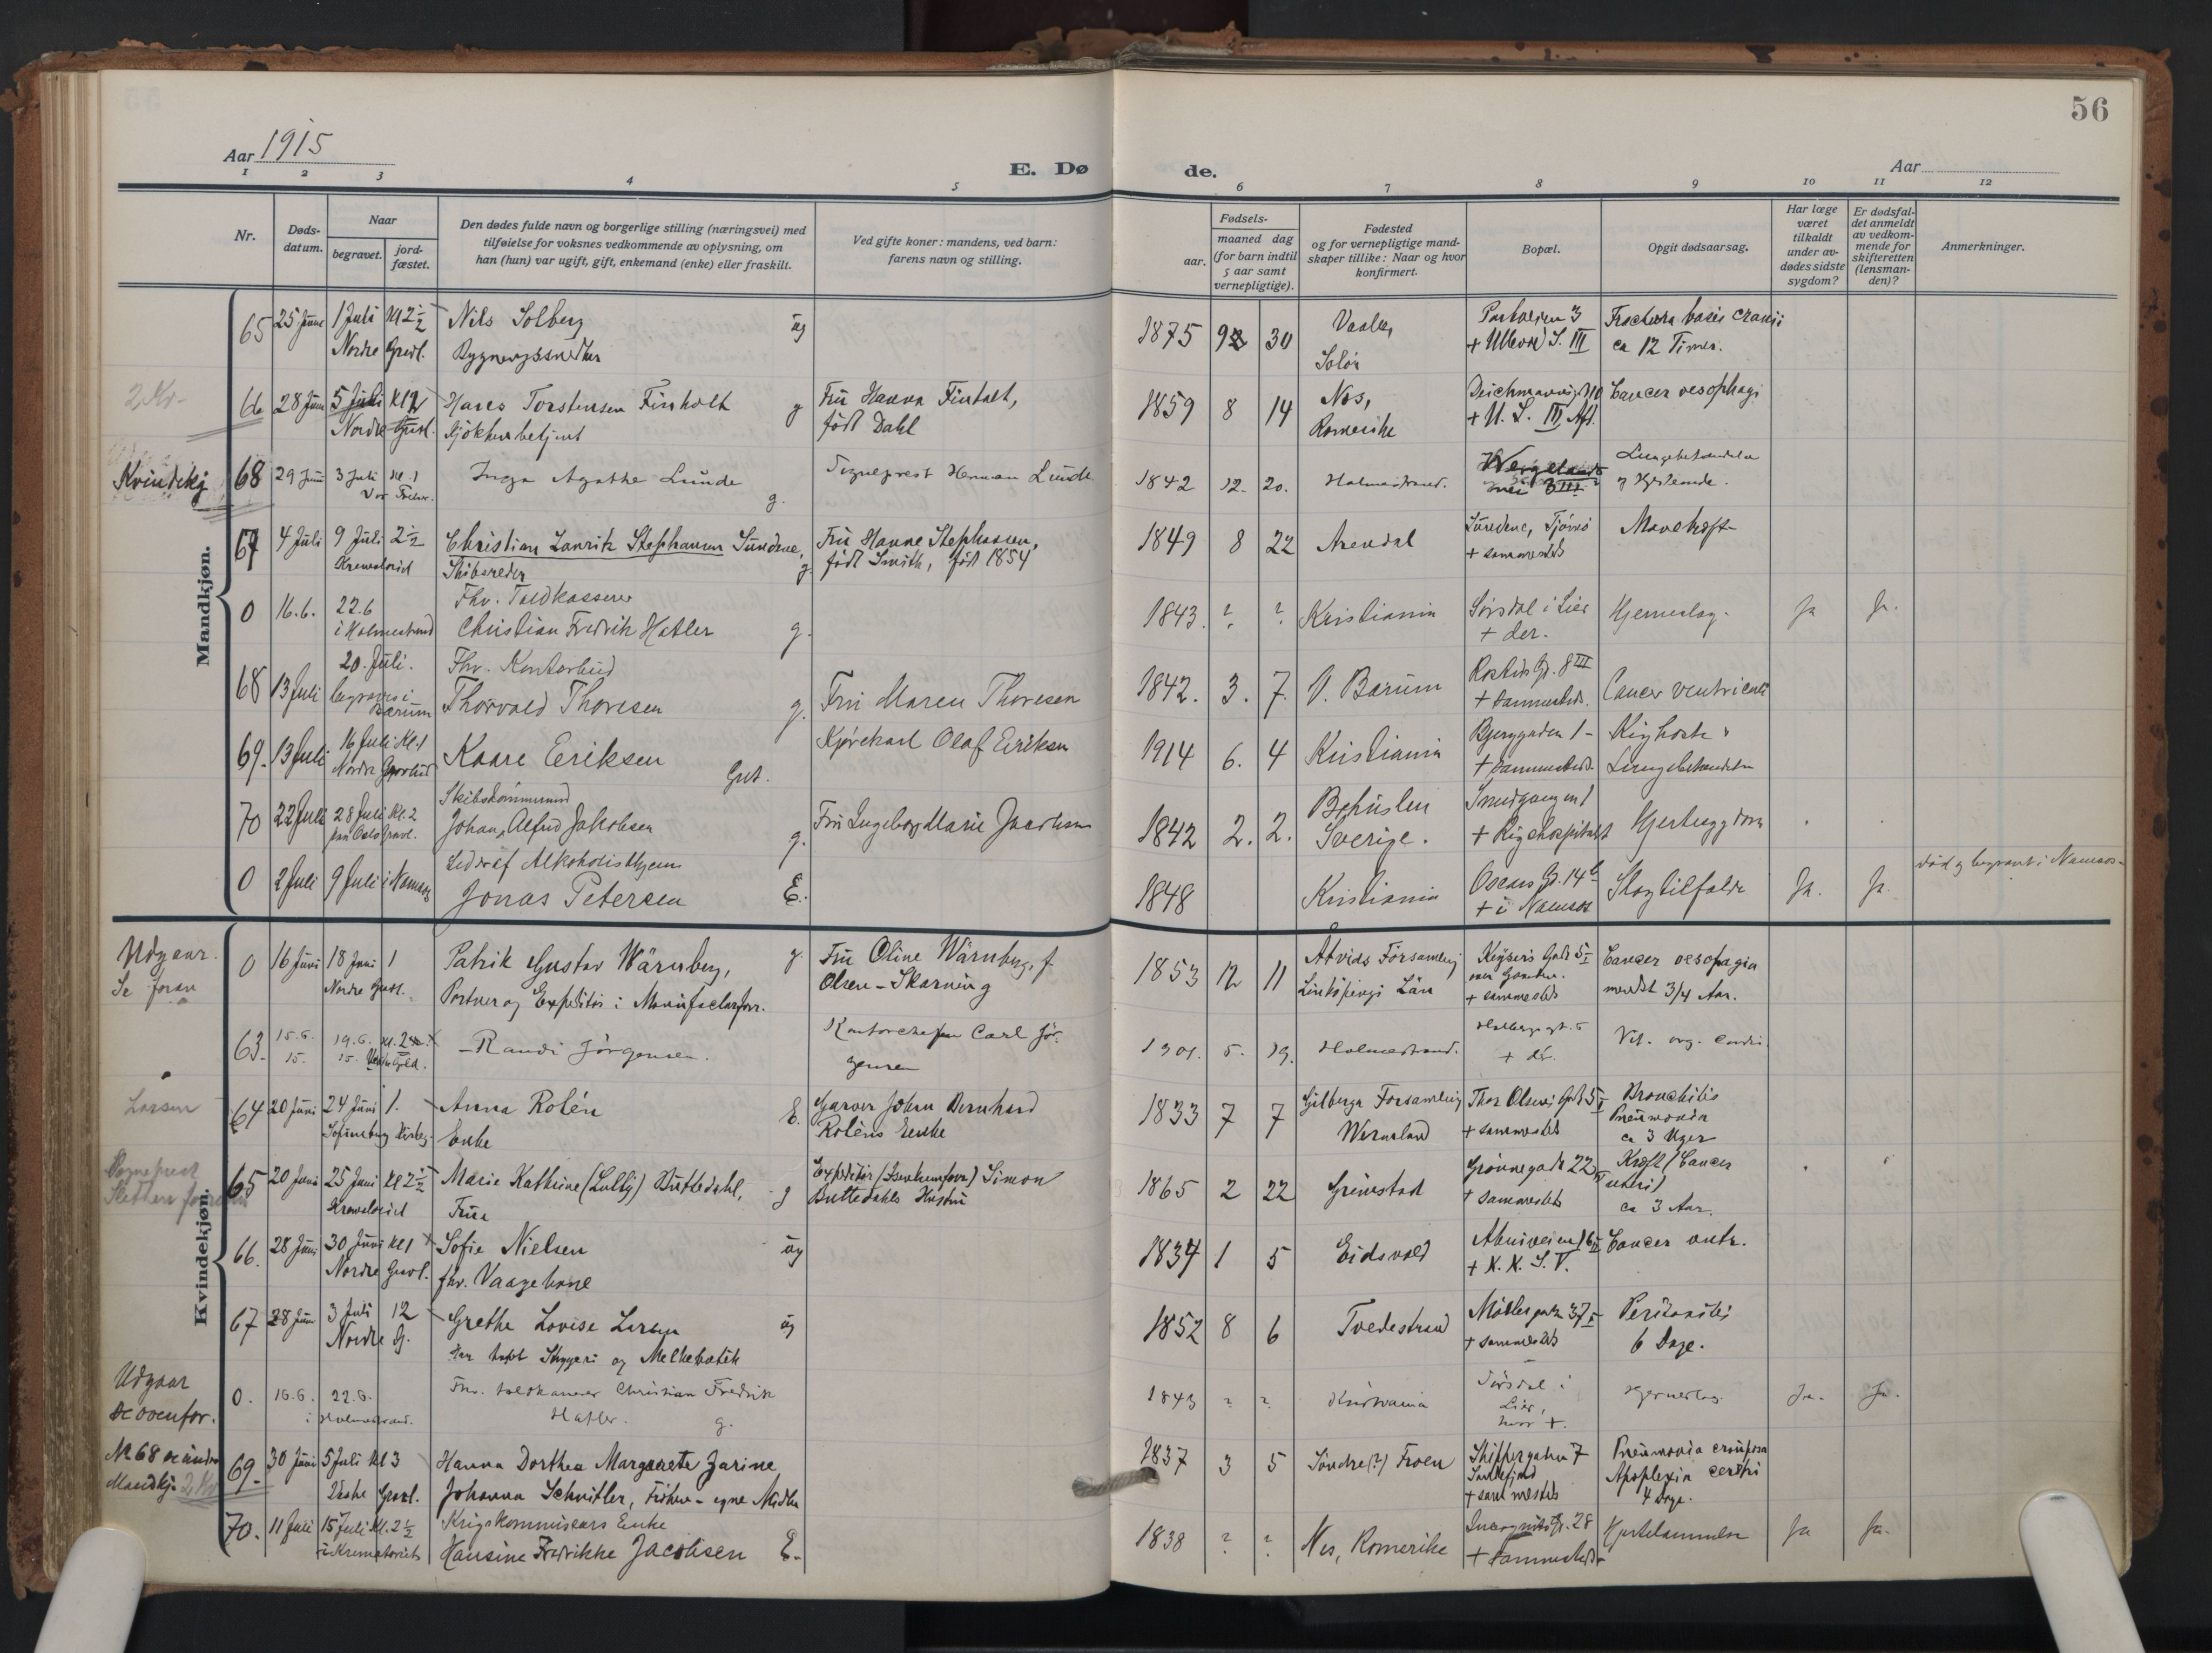 56
Aar 1915
E. Dø
de.
Aar
1 2 3 4 5 6 7 8 9 10 11 12
Nr.
Døds-
datum.
Naar
begravet.
jord-
fæstet.
Den dødes fulde navn og borgerlige stilling (næringsvei) med
tilføielse for voksnes vedkommende av oplysning, om
han (hun) var ugift, gift, enkemand (enke) eller fraskilt.
Ved gifte koner: mandens, ved barn:
farens navn og stilling.
Fødsels-
aar.
maaned dag
(for barn indtil
5 aar samt
vernepligtige).
Fødested
og for vernepligtige mand-
skaper tillike: Naar og hvor
konfirmert.
Bopæl.
Opgit dødsaarsag.
Har læge
været
tilkaldt
under av-
dødes sidste
sygdom?
Er dødsfal-
det anmeldt
av vedkom-
mende for
skifteretten
(lensman-
den)?
Anmerkninger.
Mandkjøn.
65 25 Juni 1 Juli Kl 2½ Nils Solberg ug 1875 9 30 Vaaler, + Ullevol S. III Fractura basis cranii
Nordre Gravl. Bygningssnedker Solør ca 12 Timer.
2 Kr-
66 28 Juni 5 Juli Kl 2 Hans Torstensen Finholt g Fru Hanna Finholt, 1859 8 14 Nes, Cancer oesophagi
Nordre Gravl. født Dahl Romerike + U. S. III Afl.
Kvindekj 68 29 Juni 3 Juli Kl. 1 Inga Agathe Lunde g. Sogneprest Herman Lunde 1842 12. 20. Holmestrand. Wergelands Lungebetændelse
Vor Frelser. vei 3 III
67 4 Juli 9 Juli 2½ Christian Lauritz Stephansen Sundene, Fru Hanne Stephansen, 1849 8 22 Arendal Sundene, Tjømø Mavekræft
Krematoriet Skibsreder g. født Smith, født 1854 + sammesteds
0 16.6. 22.6 Fhv. Toldkasserer
i Holmestrand Christian Fredrik Hatler g. 1843. ? ? Kristiania Sørsdal i Lier Hjerneslag. Ja Ja.
+ der.
68 13 Juli 20. Juli. Fhv. Kontorbud
begraves i Bærum Thorvald Thoresen g. Fru Maren Thoresen 1842. 3. 7. V. Bærum + sammesteds. Cancer ventriculi
69. 13 Juli 16 Juli Kl. 1 Kaare Eriksen Gut. Kjørekarl Olaf Eriksen 1914 6. 4 Kristiania Bjerggaden 1 - Kighoste
Nordre Gravlund + sammesteds. Lungebetændelse
70 22 Juli 28 Juli Kl. 2 Johan Alfred Jakobsen g. Fru Ingeborg Marie Jacobsen 1842 2. 2. Bohuslen Smedgangen 1 Hjertesygdom
Sverige. + Rigshospitalet
0 2 Juli 9 Juli i Namsos Jonas Petersen E. 1848 Kristiania Oscars Gd. 14 Slagtilfælde Ja. Ja. død og begravet i Namsos.
+ i Namsos
Kvindekjøn.
Udgaar.
Se foran
0 16 Juni 18 Juni 1 Patrik Gustav Wärnberg, g. Fru Oline Wärnberg, f. 1853 12 11 Åtvids Forsamling Keysers Gade 5 Cancer oesofagia
Nordre Gravl. Portner og Expeditør i Manufacturforr. Olsen - Skarning Linköpings Län + sammesteds mindst 3/4 Aar.
63. 15.6. 15. 19.6. 15. Randi Jörgensen. Kontorchef Carl Jör-
gensen 1901. 5. 19. Holmestrand. + der. Vit. org. cordis.
Larsen
64 20 Juni 24 Juni 1. Anna Rolén E. Garver Johan Bernhard 1833 7 7 Gilberga Forsamling Thor Olsens Gade 5 Bronchitis
Sofienberg Kirkeg. Enke Roléns Enke Wermland + sammesteds Pneumonia
ca 3 Uger
Sogneprest
65 20 Juni 25 Juni Kl 2½ Marie Kathrine (Lully) Buttedahl, g Simon 1865 2 22 Grimstad Grønnegade 22 Kræft (Cancer
Krematoriet Frue Buttedahls Hustru + sammesteds uteri)
ca 3 Aar.
66. 28 Juni 30 Juni Kl 1 Sofie Nielsen ug 1834 1 5 Eidsvold Cancer
Nordre Gravl. fhv. Vaagekone + K. K. S. V.
67 28 Juni 3 Juli 12 Grethe Lovise Larsen ug 1852 8 6 Tvedestrand Möllergade 37 Peritonitis
Nordre G. Har havt Skyggeri og Melkebutik + sammesteds 6 Dage.
Udgaar
Se ovenfor.
0. 16.6. 22.6. Fhv. toldkasserer Christian Fredrik 1843 ? ? Kristiania Sørsdal i Hjerneslag. Ja. Ja.
i Holmestrand. Hatler. g. Lier,
hvor +.
Nr 68 se under
Mandkj. 2 Kr
69. 30 Juni 5 Juli Kl 3 Hanna Dorthea Margarete Zarine 1837 3 5 Søndre (?) Froen Skippergaden 7 Pneumonia crouposa
Vestre Gravl. Johanna Schnitler, Frøken - egne Midler Sandefjord Apoplexia cerebri
+ sammesteds 4 Dage.
70. 11 Juli 15 Juli Kl. 2½ Krigskommissærs Enke
i Krematoriet Hansine Fredrikke Jacobsen E. 1838 ? ? Nes, Romerike Hjertelammelse Ja Ja.
+ sammesteds